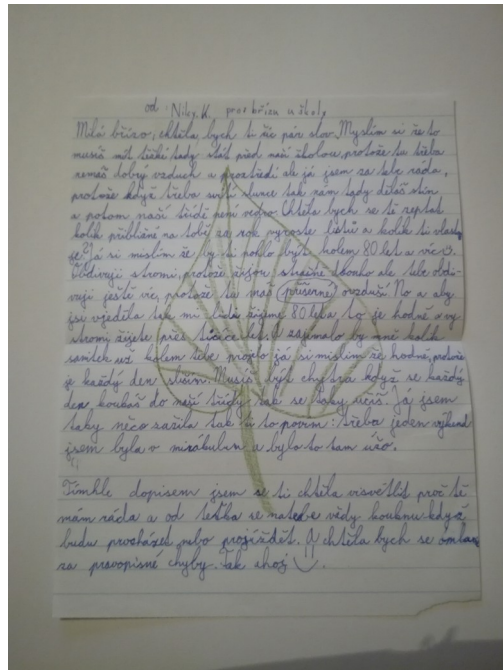 od Niky.K. pro břízu u školy
Milá břízo, chtěla bych ti říc pár slov. Myslím si že to
musíš mít těžké tady stát před naší školou, protože tu třeba
nemáš dobrý vzduch a prostředí ale já jsem za tebe ráda,
protože když třeba svítí slunce tak nám tady děláš stín
a potom naší třídě není vedro. Chtěla bych se tě zeptat
kolik přibližně na tobě za rok vyroste listů a kolik ti vlastně
je? Já si mislím že by ti mohlo být kolem 80 let a víc
Obdivuji stromi, protože žijou strašně dlouho ale tebe obdi-
vuji ještě víc, protože tu máš příšerné ovzduší. No a aby
jsi vjeděla tak mi lidé žijeme 80 let a to je hodně a vy
stromi žijete přes tisíce let. A zajímalo by mně kolik
sanitek už kolem tebe projelo já si mislím že hodně, protože
je každý den slišim. Musíš být chytrá když se každý
den koukáš do naší třídy tak se taky učíš. Já jsem
taky něco zažila tak ti to povim: třeba jeden víkend
jsem byla v mirákulum a bylo to tam úžo.
Tímhle dopisem jsem se ti chtěla visvětlit proč tě
mám ráda a od teťka se na tebe vždy kouknu když
budu procházet nebo projíždět. A chtěla bych se omluvit
za pravopisné chyby. Tak ahoj